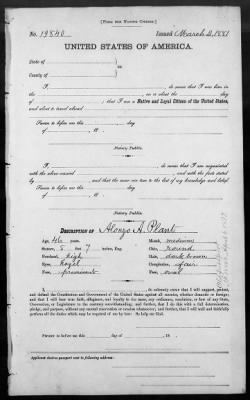 [FORM FOR NATIVE CITIZEN.]
No. 19840 Issued March 4, 1881
UNITED STATES OF AMERICA.
State of
County of
I, do swear that I was born in
the on or about the day
of , that I am a Native and Loyal Citizen of the United States,
and about to travel abroad.
Sworn to before me this day
of , 18 .
Notary Public.
I, do swear that I am acquainted
with the above named and with the facts stated
by and that the same are true to the best of my knowledge and belief.
Sworn to before me this day
of , 18 .
Notary Public.
DESCRIPTION OF Alonzo A. Plant
Age, 46 years. Mouth, medium
Stature, 5 ft 7 inches, Eng. Chin, round
Forehead, high Hair, dark brown
Eyes, Hazel Complexion, fair
Nose, prominent Face, oval
I, do solemnly swear that I will support, protect,
and defend the Constitution and Government of the United States against all enemies, whether domestic or foreign,
and that I will bear true faith, allegiance, and loyalty to the same, any ordinance, resolution, or law of any State,
Convention, or Legislature to the contrary notwithstanding; and further, that I do this with a full determination,
pledge, and purpose, without any mental reservation or evasion whatsoever; and further, that I will well and faithfully
perform all the duties which may be required of me by law: So help me God.
Sworn to before me this day of , 18 .
Applicant desires passport sent to following address: